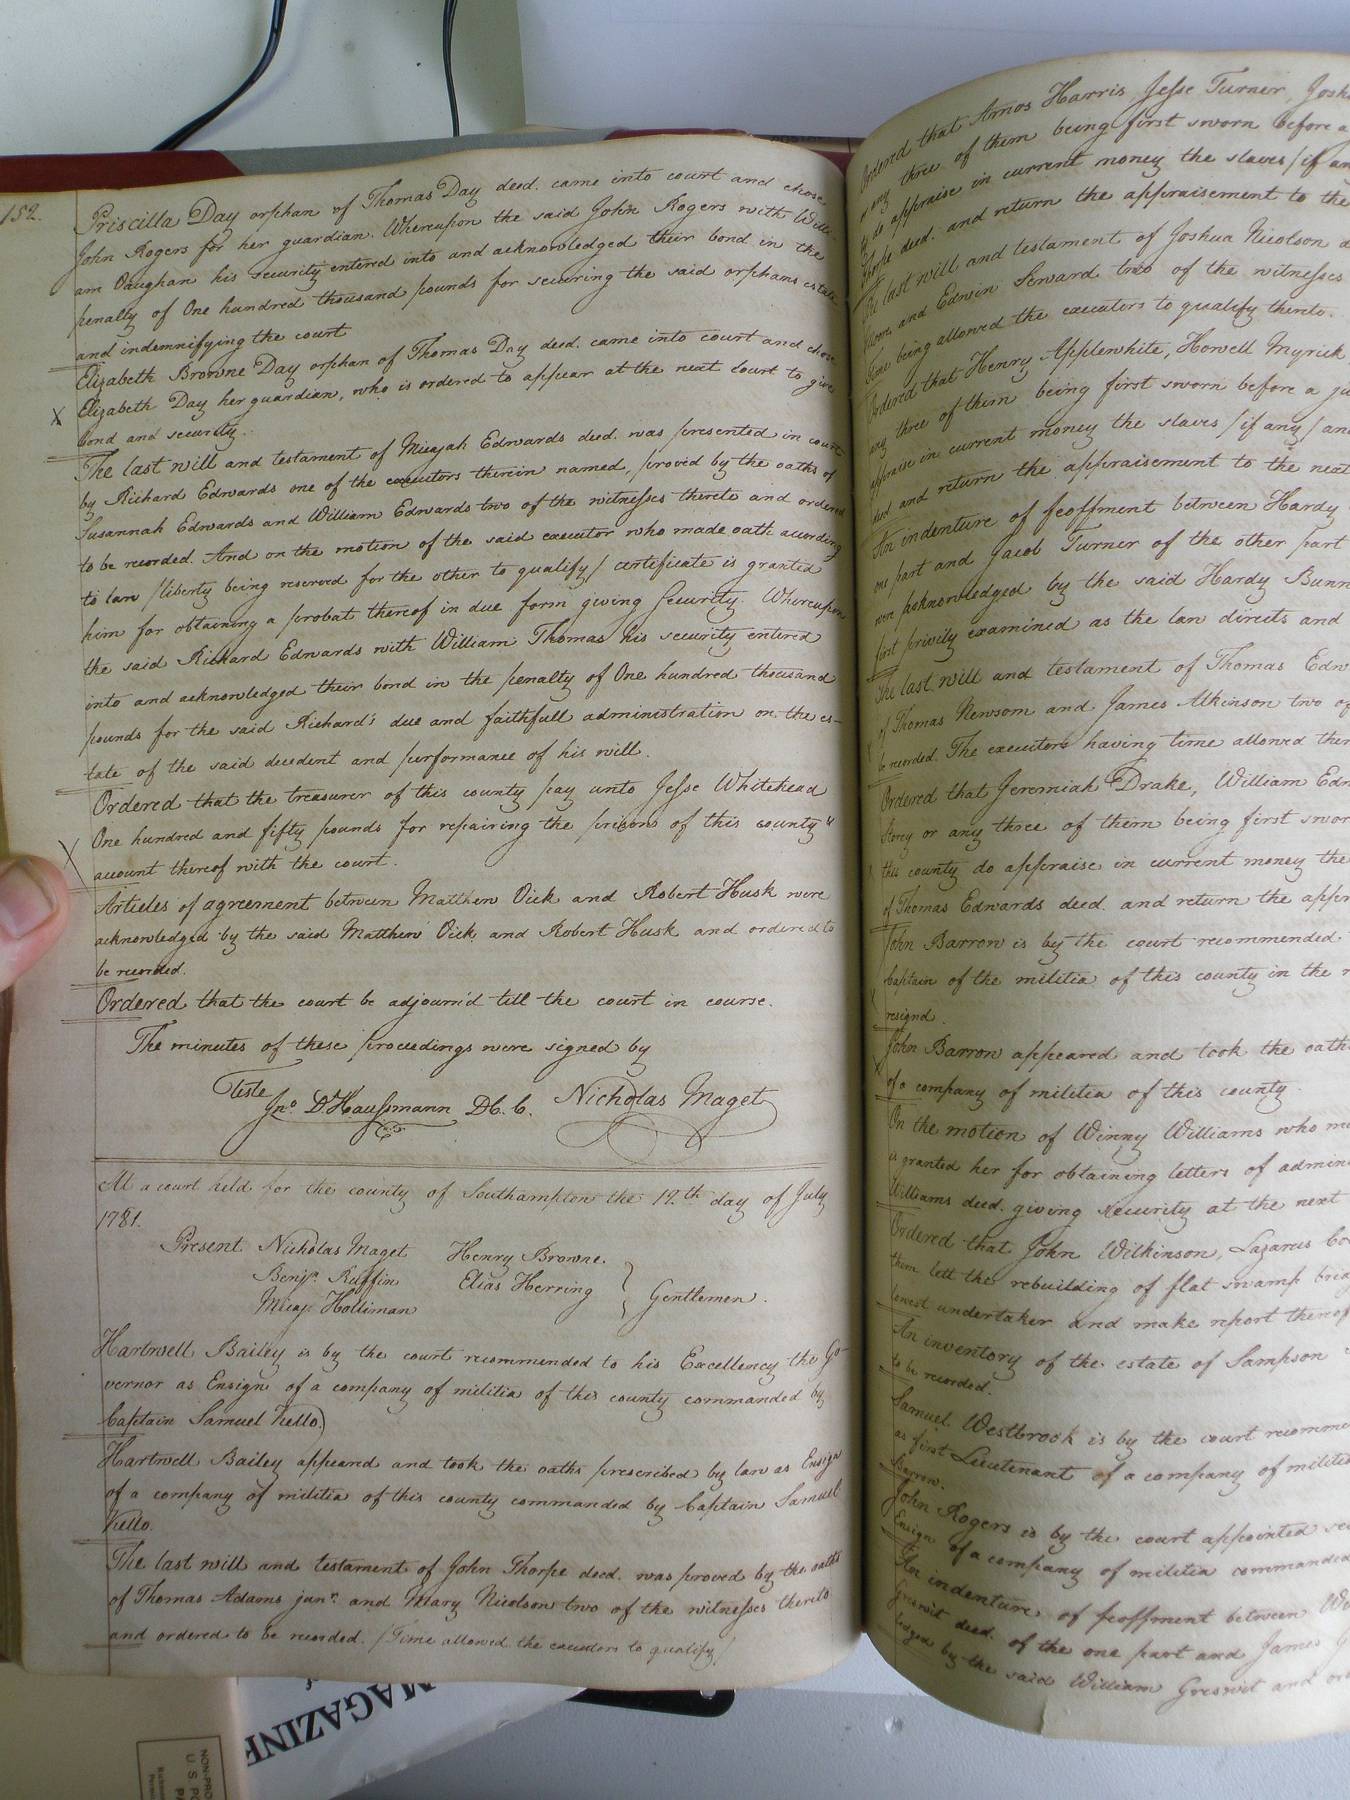 152.
Priscilla Day orphan of Thomas Day decd. came into court and chose
John Rogers for her guardian. Whereupon the said John Rogers with Willi-
am Vaughan his security entered into and acknowledged their bond in the
penalty of One hundred thousand pounds for securing the said orphans estate
and indemnifying the court
Elizabeth Browne Day orphan of Thomas Day decd. came into court and chose
X Elizabeth Day her guardian, who is ordered to appear at the next Court to give
bond and security.
The last will and testament of Micajah Edwards decd. was presented in court
by Richard Edwards one of the executors therein named, proved by the oaths of
Susannah Edwards and William Edwards two of the witnesses thereto and ordered
to be recorded. And on the motion of the said executor who made oath according
to law /liberty being reserved for the other to qualify/ certificate is granted
him for obtaining a probat thereof in due form giving Security. Whereupon
the said Richard Edwards with William Thomas his security entered
into and acknowledged their bond in the penalty of One hundred thousand
pounds for the said Richard's due and faithfull administration on the es-
tate of the said decedent and performance of his will.
Ordered that the treasurer of this county pay unto Jesse Whitehead
X One hundred and fifty pounds for repairing the prisons of this county "
account thereof with the court.
Articles of agreement between Matthew Vick and Robert Husk were
acknowledged by the said Matthew Vick and Robert Husk and ordered to
be recorded.
Ordered that the court be adjourn'd till the court in course.
The minutes of these proceedings were signed by
Teste
Jno. D'Haussmann D.C.C. Nicholas Maget
At a court held for the county of Southampton the 12th day of July
1781.
Present Nicholas Maget Henry Browne
Benjn. Ruffin Elias Herring } Gentlemen.
Micaj. Holliman
Hartwell Bailey is by the court recommended to his Excellency the Go-
vernor as Ensign of a company of militia of this county commanded by
Captain Samuel Kello.
Hartwell Bailey appeared and took the oaths prescribed by law as Ensign
of a company of militia of this county commanded by Captain Samuel
Kello.
The last will and testament of John Thorpe decd. was proved by the oaths
of Thomas Adams junr. and Mary Nicolson two of the witnesses thereto
and ordered to be recorded. /Time allowed the executors to qualify/
Ordered that Amos Harris, Jesse Turner, Josh
or any three of them being first sworn before a
do appraise in current money the slaves /if an
Thorpe decd. and return the appraisement to the
The last will and testament of Joshua Nicolson d
and Edwin Seward two of the witnesses
time being allowed the executors to qualify thereto.
Ordered that Henry Applewhite, Howell Myrick
any three of them being first sworn before a ju
appraise in current money the slaves /if any/ an
decd and return the appraisement to the next
An indenture of feoffment between Hardy
one part and Jacob Turner of the other part
were acknowledged by the said Hardy Bunn
first privily examined as the law directs and
The last will and testament of Thomas Edw
of Thomas Newsom and James Atkinson two of
be recorded. The executors having time allowed them
Ordered that Jeremiah Drake, William Edw
Storey or any three of them being first swor
this county do appraise in current money the
of Thomas Edwards decd. and return the appra
John Barron is by the court recommended
Captain of the militia of this county in the r
resignd.
John Barron appeared and took the oath
of a company of militia of this county.
On the motion of Winny Williams who ma
is granted her for obtaining letters of admin
Williams decd. giving security at the next
Ordered that John Wilkinson, Lazarus Co
them lett the rebuilding of flat swamp brid
lowest undertaker and make report thereof
An inventory of the estate of Sampson
to be recorded.
Samuel Westbrook is by the court recomme
as first Lieutenant of a company of militia
Barron.
John Rogers is by the court appointed se
Ensign of a company of militia commanded
An indenture of feoffment between W
Greswit decd. of the one part and James G
ledged by the said William Greswit and or
MAGAZINE
NON-PRO
U. S. PO